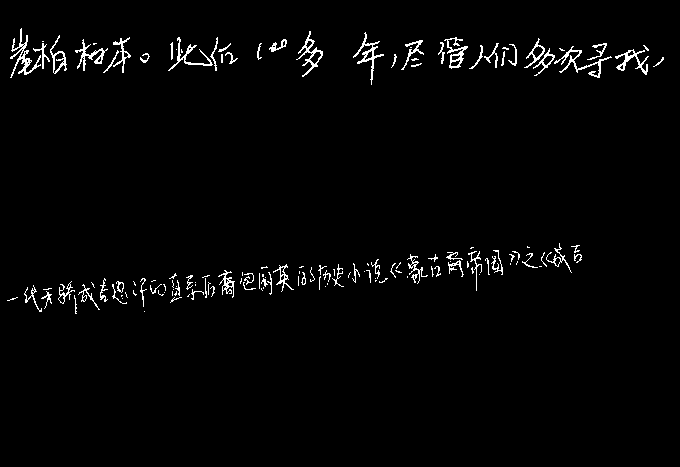 崖柏标本。此后100多年,尽管人们多次寻找,
一代天骄成吉思汗的直系后裔包丽英的历史小说《蒙古帝国》之《成吉